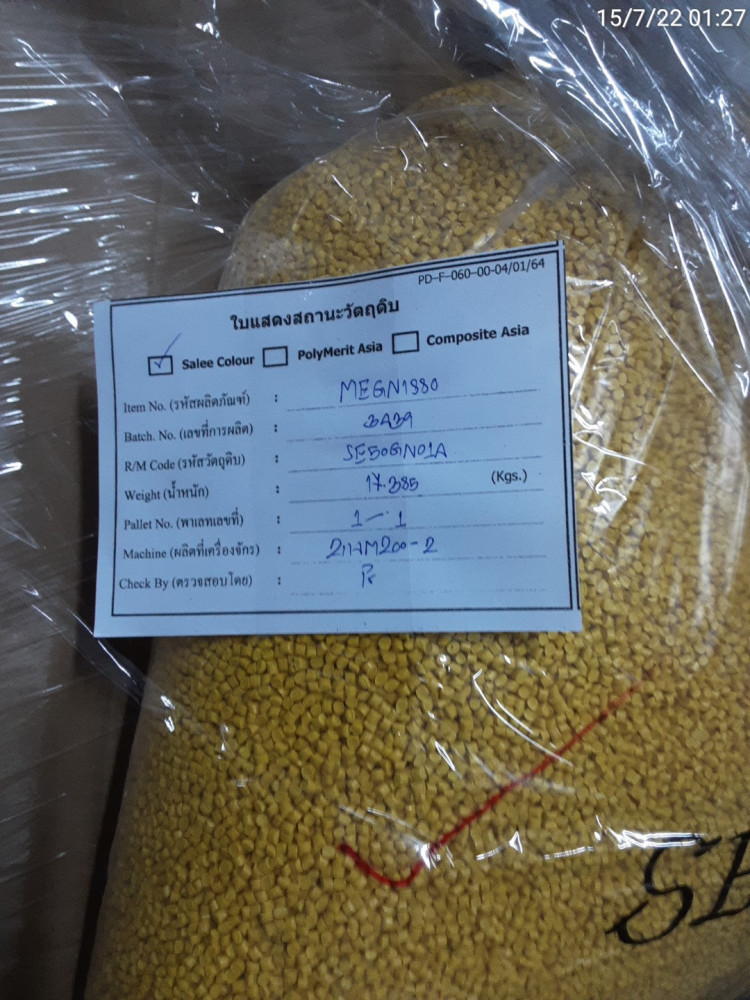 15/7/22 01:27
PD-F-060-00-04/01/64
ใบแสดงสถานะวัตถุดิบ
Salee Colour PolyMerit Asia Composite Asia
Item No. (รหัสผลิตภัณฑ์) : MEGN1880
Batch. No. (เลขที่การผลิต) : 3A39
R/M Code (รหัสวัตถุดิบ) : SEBOGN01A
Weight (น้ำหนัก) : 17.385 (Kgs.)
Pallet No. (พาเลทเลขที่) : 1-1
Machine (ผลิตที่เครื่องจักร) :
Check By (ตรวจสอบโดย) :
SE